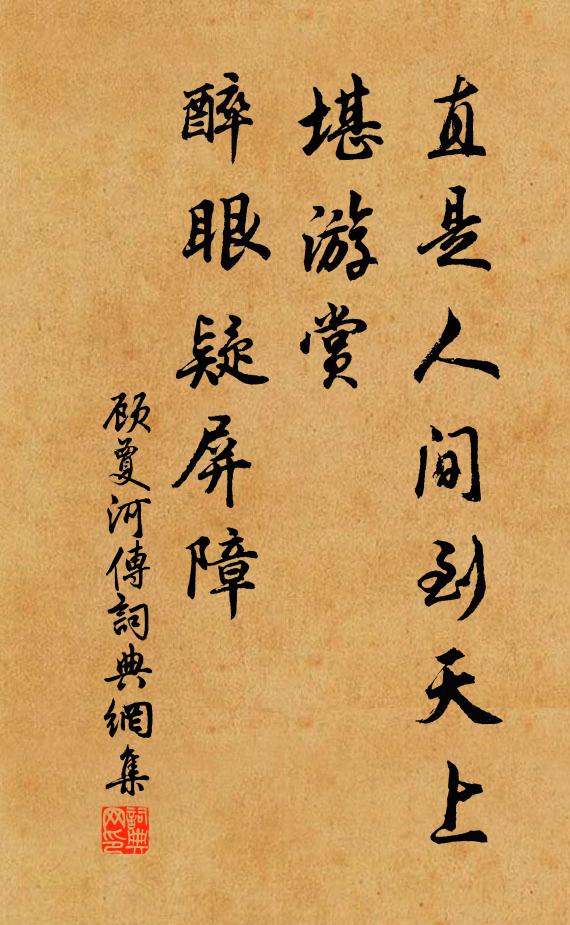 直是人间到天上
堪游赏
醉眼疑屏障
顾敻河傳詞典網集
詞典网印